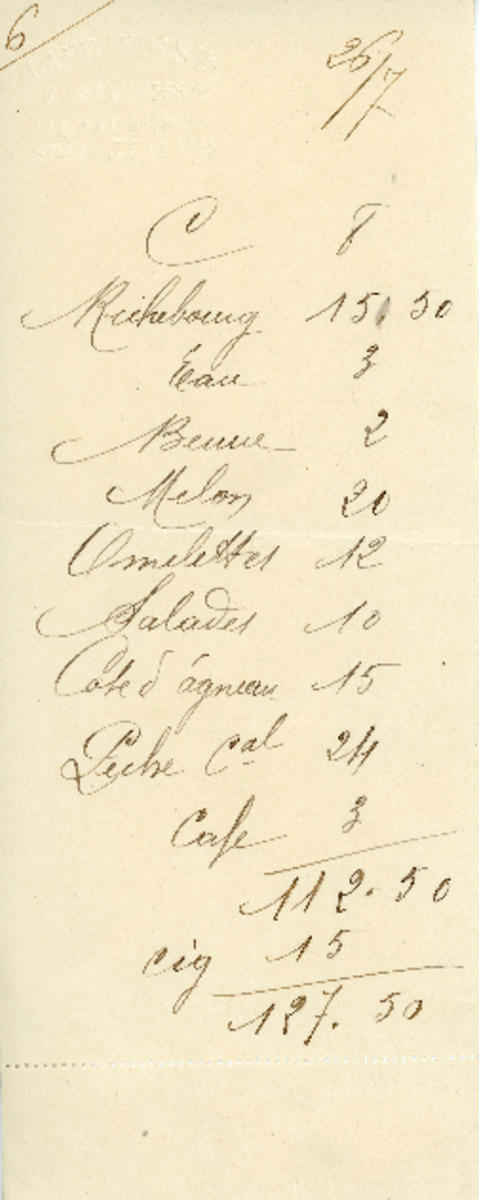 6
26/7
C 8
Richebourg 15.50
Eau 3
Beurre 2
Melon 20
Omelettes 12
Salades 10
Cote d'agneau 15
Pêche Cal 24
Cafe 3
112.50
cig 15
127.50